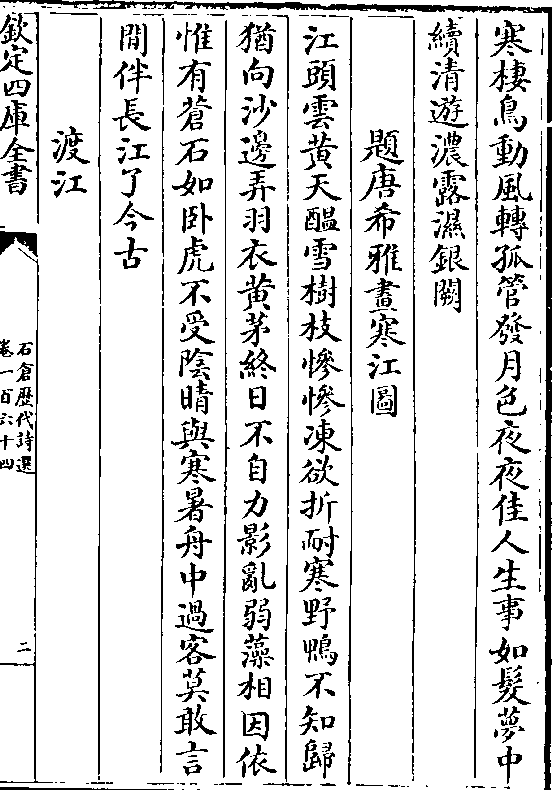 寒棲鳥動風轉孤管發月色夜夜佳人生事如髮夢中
續清遊濃露濕銀闕
題唐希雅畫寒江圖
江頭雲黄天醖雪樹枝慘慘凍欲折耐寒野鴨不知歸
猶向沙邊弄羽衣黄茅終日不自力影亂弱藻相因依
惟有蒼石如卧虎不受陰晴與寒暑舟中過客莫敢言
閒伴長江了今古
渡江
欽定四庫全書
石倉歷代詩選
卷一百六十四
二